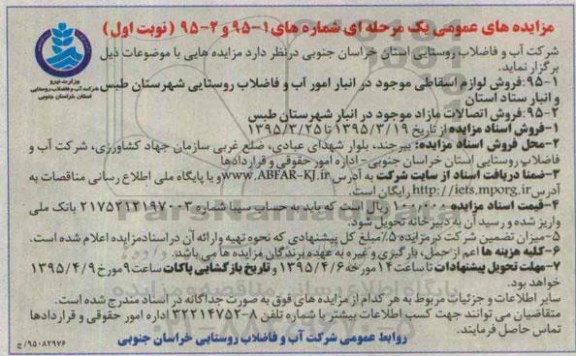 مزایده های عمومی یک مرحله ای شماره های ۱-۹۵ و ۲-۹۵ (نوبت اول)
شرکت آب و فاضلاب روستایی استان خراسان جنوبی درنظر دارد مزایده هایی با موضوعات ذیل
برگزار نماید.
۱-۹۵:فروش لوازم اسقاطی موجود در انبار امور آب و فاضلاب روستایی شهرستان طبس
و انبار ستاد استان
۲-۹۵:فروش اتصالات مازاد موجود در انبار شهرستان طبس
وزارت نیرو
شرکت آب و فاضلاب روستایی
استان خراسان جنوبی
۱-فروش اسناد مزایده از تاریخ ۱۳۹۵/۳/۱۹ تا ۱۳۹۵/۳/۲۵
۲-محل فروش اسناد مزایده: بیرجند، بلوار شهدای عبادی، ضلع غربی سازمان جهاد کشاورزی، شرکت آب و
فاضلاب روستایی استان خراسان جنوبی-اداره امور حقوقی و قراردادها
۳-ضمنا دریافت اسناد از سایت شرکت به آدرس www.ABFAR-KJ.ir و یا پایگاه ملی اطلاع رسانی مناقصات به
آدرس http://iets.mporg.ir رایگان است.
۴-قیمت اسناد مزایده ۱۰۰/۰۰۰ ریال است که باید به حساب سیبا شماره ۲۱۷۵۲۱۲۱۹۷۰۰۳ بانک ملی
واریز شده و رسید آن به دبیرخانه تحویل شود.
۵-میزان تضمین شرکت در مزایده ۵٪ مبلغ کل پیشنهادی که نحوه تهیه و ارائه آن در اسناد مزایده اعلام شده است.
۶-کلیه هزینه ها اعم از حمل، بارگیری و غیره به عهده برندگان مزایده ها می باشد.
۷-مهلت تحویل پیشنهادات تا ساعت ۱۴ مورخه ۱۳۹۵/۴/۶ و تاریخ بازگشایی پاکات ساعت ۹ مورخ ۱۳۹۵/۴/۹
خواهد بود.
سایر اطلاعات و جزئیات مربوط به هر کدام از مزایده های فوق به صورت جداگانه در اسناد مندرج شده است.
متقاضیان می توانند جهت کسب اطلاعات بیشتر با شماره تلفن ۸-۳۲۲۱۴۷۵۲ اداره امور حقوقی و قراردادها
تماس حاصل فرمایند.
روابط عمومی شرکت آب و فاضلاب روستایی خراسان جنوبی
۹۵۰۸۲۹۷۶/ج